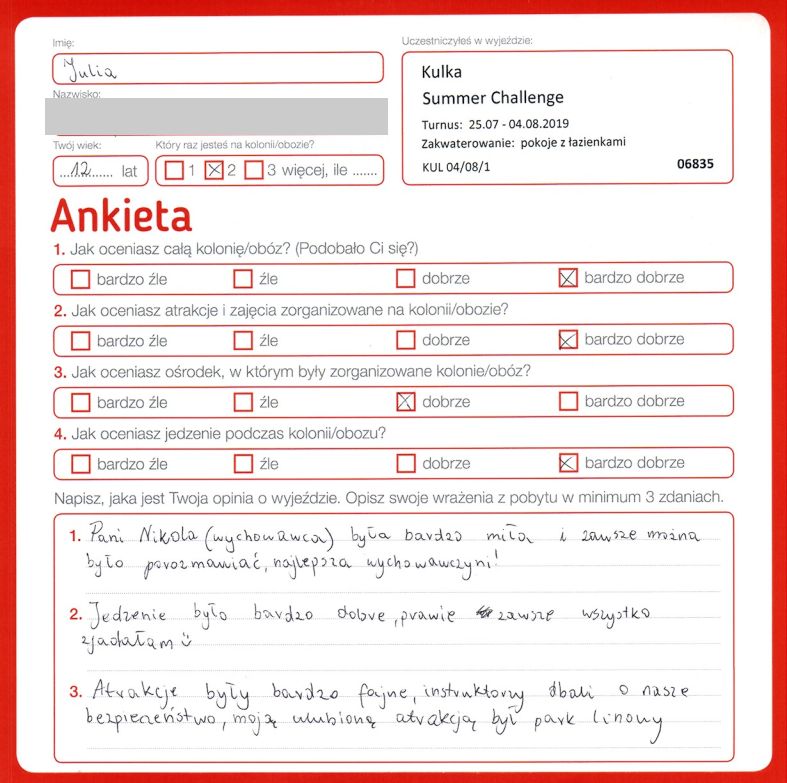 Imię:
Julia
Nazwisko:
Twój wiek:
12 lat
Który raz jesteś na kolonii/obozie?
1 2 3 więcej, ile .......
Uczestniczyłeś w wyjeździe:
Kulka
Summer Challenge
Turnus: 25.07 - 04.08.2019
Zakwaterowanie: pokoje z łazienkami
KUL 04/08/1 06835
Ankieta
1. Jak oceniasz całą kolonię/obóz? (Podobało Ci się?)
bardzo źle źle dobrze bardzo dobrze
2. Jak oceniasz atrakcje i zajęcia zorganizowane na kolonii/obozie?
bardzo źle źle dobrze bardzo dobrze
3. Jak oceniasz ośrodek, w którym były zorganizowane kolonie/obóz?
bardzo źle źle dobrze bardzo dobrze
4. Jak oceniasz jedzenie podczas kolonii/obozu?
bardzo źle źle dobrze bardzo dobrze
Napisz, jaka jest Twoja opinia o wyjeździe. Opisz swoje wrażenia z pobytu w minimum 3 zdaniach.
1. Pani Nikola (wychowawca) była bardzo miła i zawsze można
było porozmawiać, najlepsza wychowawczyni!
2. Jedzenie było bardzo dobre, prawie zawsze wszystko
zjadałam
3. Atrakcje były bardzo fajne, instruktorzy dbali o nasze
bezpieczeństwo, moją ulubioną atrakcją był park linowy